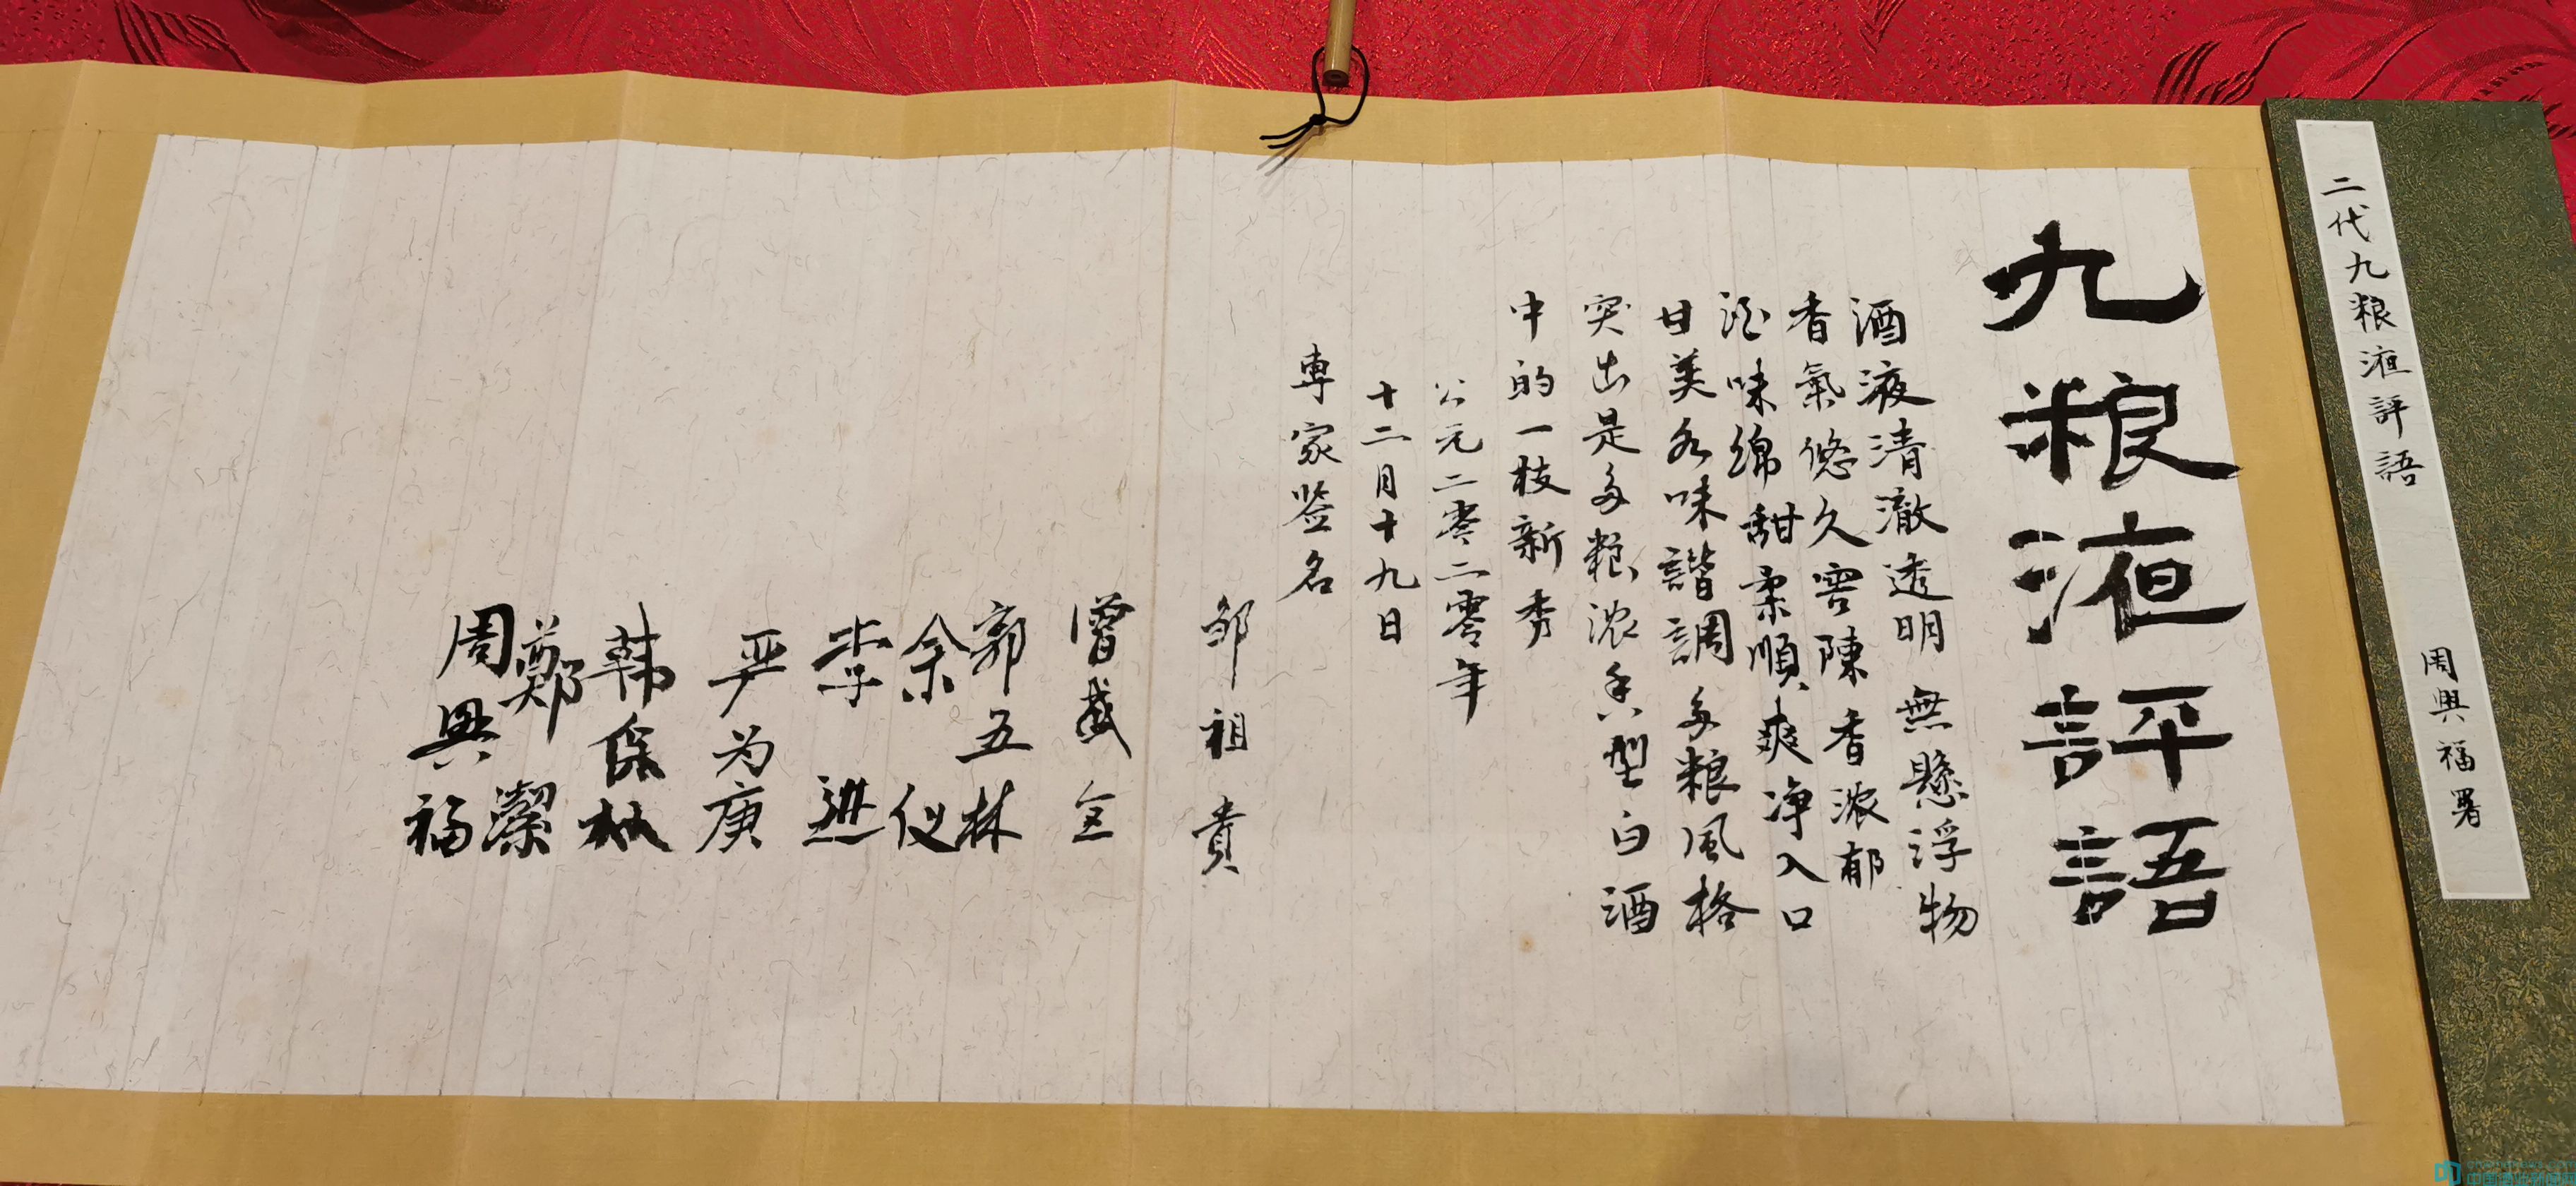 二代九粮液評語 周興福署
九粮液評語
酒液清澈透明無懸浮物
香氣悠久窖陳香浓郁
酒味绵甜柔順爽净入口
甘美各味諧調多粮風格
突出是多粮浓香型白酒
中的一枝新秀
公元二零二零年
十二月十九日
專家签名
邹祖貴
曾盛全
郭五林
余仪
李進
严为庚
韩保林
鄭潔
周興福